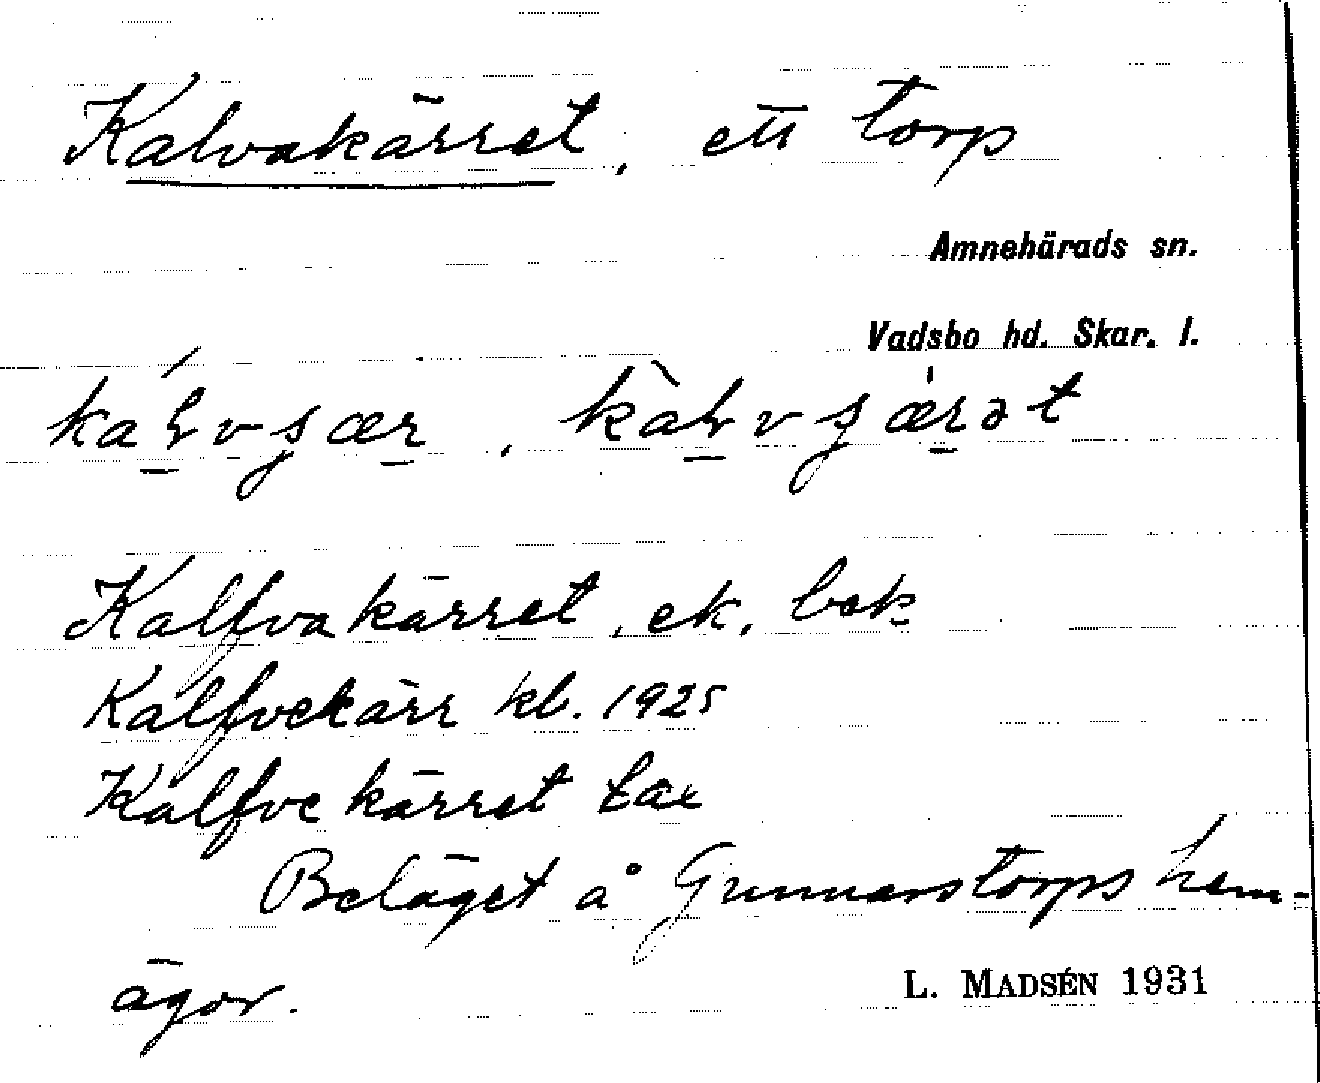 Kalvakärret, ett torp
Amnehärads sn.
Vadsbo hd. Skar. l.
Kalfvakärret, ek. bok
Kalfvekärr kb. 1925
Kalfvekärret tax
Beläget å Gunnarstorps hem-
ägor.
L. MADSÉN 1931